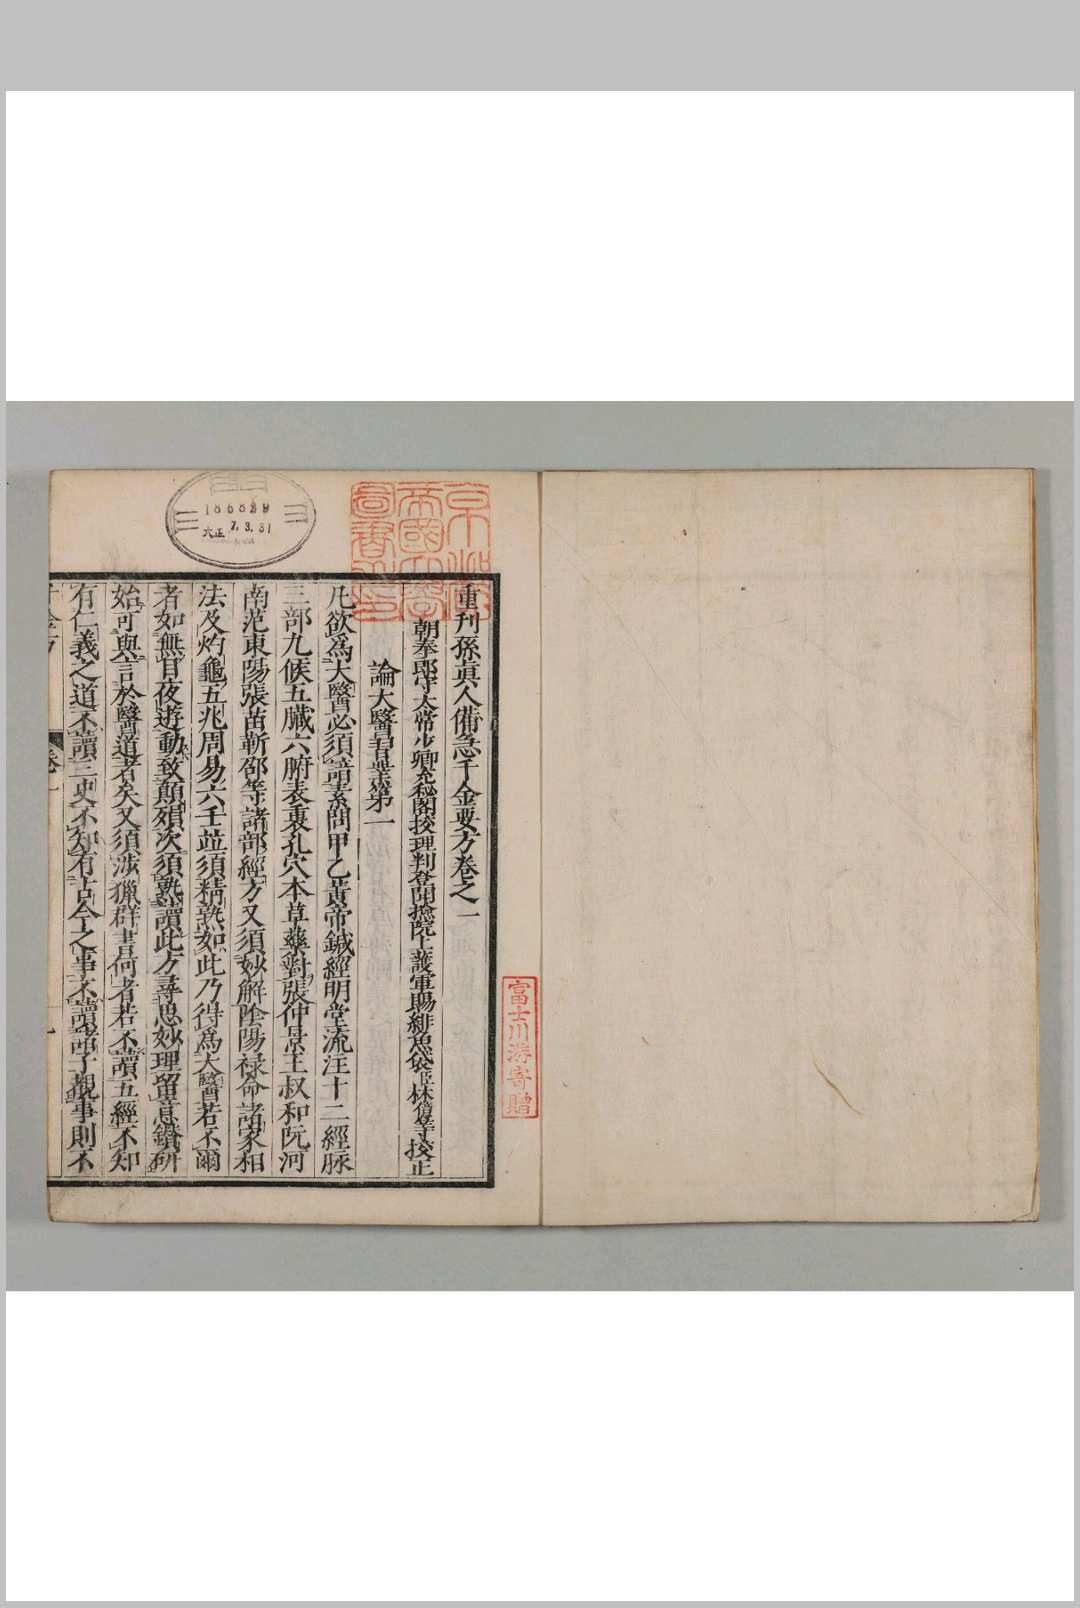 重刊孫眞人備急千金要方卷之一
朝奉郎守太常少卿充秘閣挍理判登聞撿院上護軍賜緋魚袋臣林億等挍正
論大醫習業第一
凡欲爲大醫必須諳素問甲乙黃帝鍼經明堂流注十二經脉
三部九候五臟六腑表裏孔穴本草藥對張仲景王叔和阮河
南范東陽張苗靳邵等諸部經方又須妙解陰陽祿命諸家相
法及灼龜五兆周易六壬並須精熟如此乃得爲大醫若不爾
者如無目夜遊動致顛殞次須熟讀此方尋思妙理留意鑽研
始可與言於醫道者矣又須涉獵群書何者若不讀五經不知
有仁義之道不讀三史不知有古今之事不讀諸子覩事則不
京都
帝國大學
圖書之印
富士川游寄贈
186829
大正 7. 3. 31